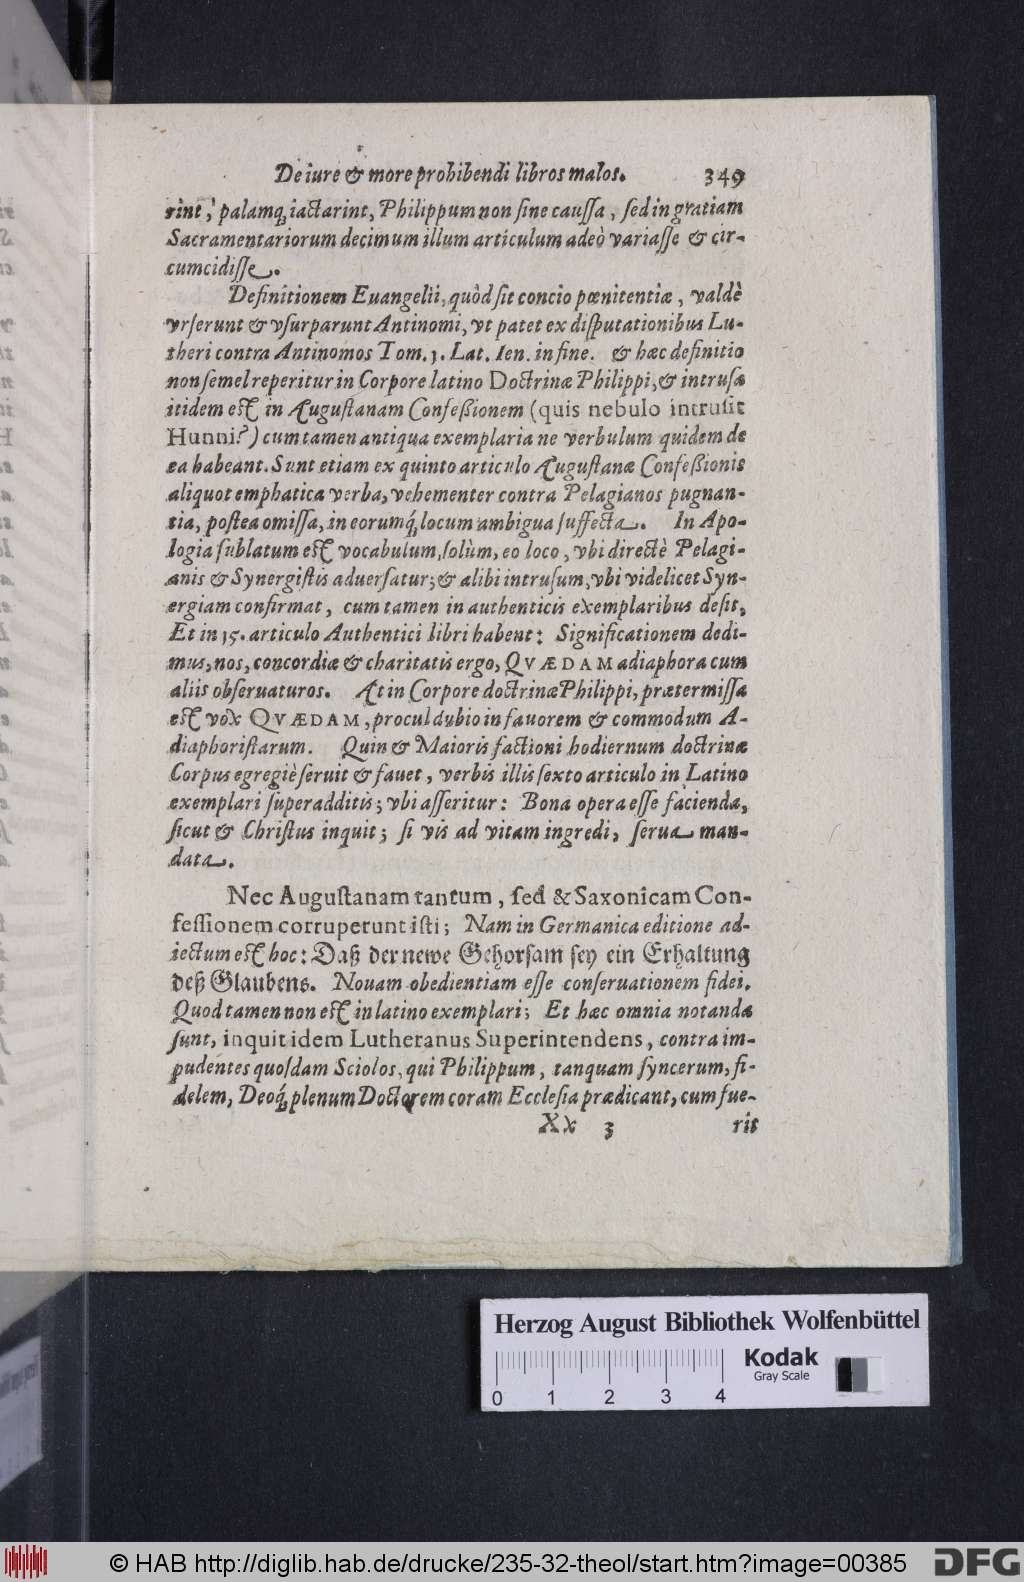 De iure & more prohibendi libros malos. 349
rint, palamq́; iactarint, Philippum non ſine cauſſa, ſed in gratiam
Sacramentariorum decimum illum articulum adeò variaſſe & cir-
cumcidiſſe.
Definitionem Euangelii, quòd ſit concio pœnitentiæ, valdè
vrſerunt & vſurparunt Antinomi, vt patet ex diſputationibus Lu-
theri contra Antinomos Tom. 1. Lat. Ien. in fine. & hæc definitio
non ſemel reperitur in Corpore latino Doctrinæ Philippi, & intruſa
itidem eſt in Auguſtanam Confeßionem (quis nebulo intruſit
Hunni?) cum tamen antiqua exemplaria ne verbulum quidem de
ea habeant. Sunt etiam ex quinto articulo Auguſtanæ Confeßionis
aliquot emphatica verba, vehementer contra Pelagianos pugnan-
tia, poſtea omiſſa, in eorumq́; locum ambigua ſuffecta. In Apo-
logia ſublatum eſt vocabulum, ſolùm, eo loco, vbi directè Pelagi-
anis & Synergiſtis aduerſatur; & alibi intruſum, vbi videlicet Syn-
ergiam confirmat, cum tamen in authenticis exemplaribus deſit,
Et in 15. articulo Authentici libri habent: Significationem dedi-
mus, nos, concordiæ & charitatis ergo, QVÆDAM adiaphora cum
aliis obſeruaturos. At in Corpore doctrinæ Philippi, prætermiſſa
eſt vox QVÆDAM, procul dubio in fauorem & commodum A-
diaphoriſtarum. Quin & Maioris factioni hodiernum doctrinæ
Corpus egregiè ſeruit & fauet, verbis illis ſexto articulo in Latino
exemplari ſuperadditis; vbi aſſeritur: Bona opera eſſe facienda,
ſicut & Chriſtus inquit; ſi vis ad vitam ingredi, ſerua man-
data.
Nec Auguſtanam tantum, ſed & Saxonicam Con-
feſſionem corruperunt iſti; Nam in Germanica editione ad-
iectum eſt hoc: Daß der newe Gehorſam ſey ein Erhaltung
deß Glaubens. Nouam obedientiam eſſe conſeruationem fidei.
Quod tamen non eſt in latino exemplari; Et hæc omnia notanda
ſunt, inquit idem Lutheranus Superintendens, contra im-
pudentes quoſdam Sciolos, qui Philippum, tanquam ſyncerum, fi-
delem, Deoq́; plenum Doctorem coram Eccleſia prædicant, cum fue-
Xx 3 ris
Herzog August Bibliothek Wolfenbüttel
Kodak
Gray Scale
0 1 2 3 4
© HAB http://diglib.hab.de/drucke/235-32-theol/start.htm?image=00385
DFG